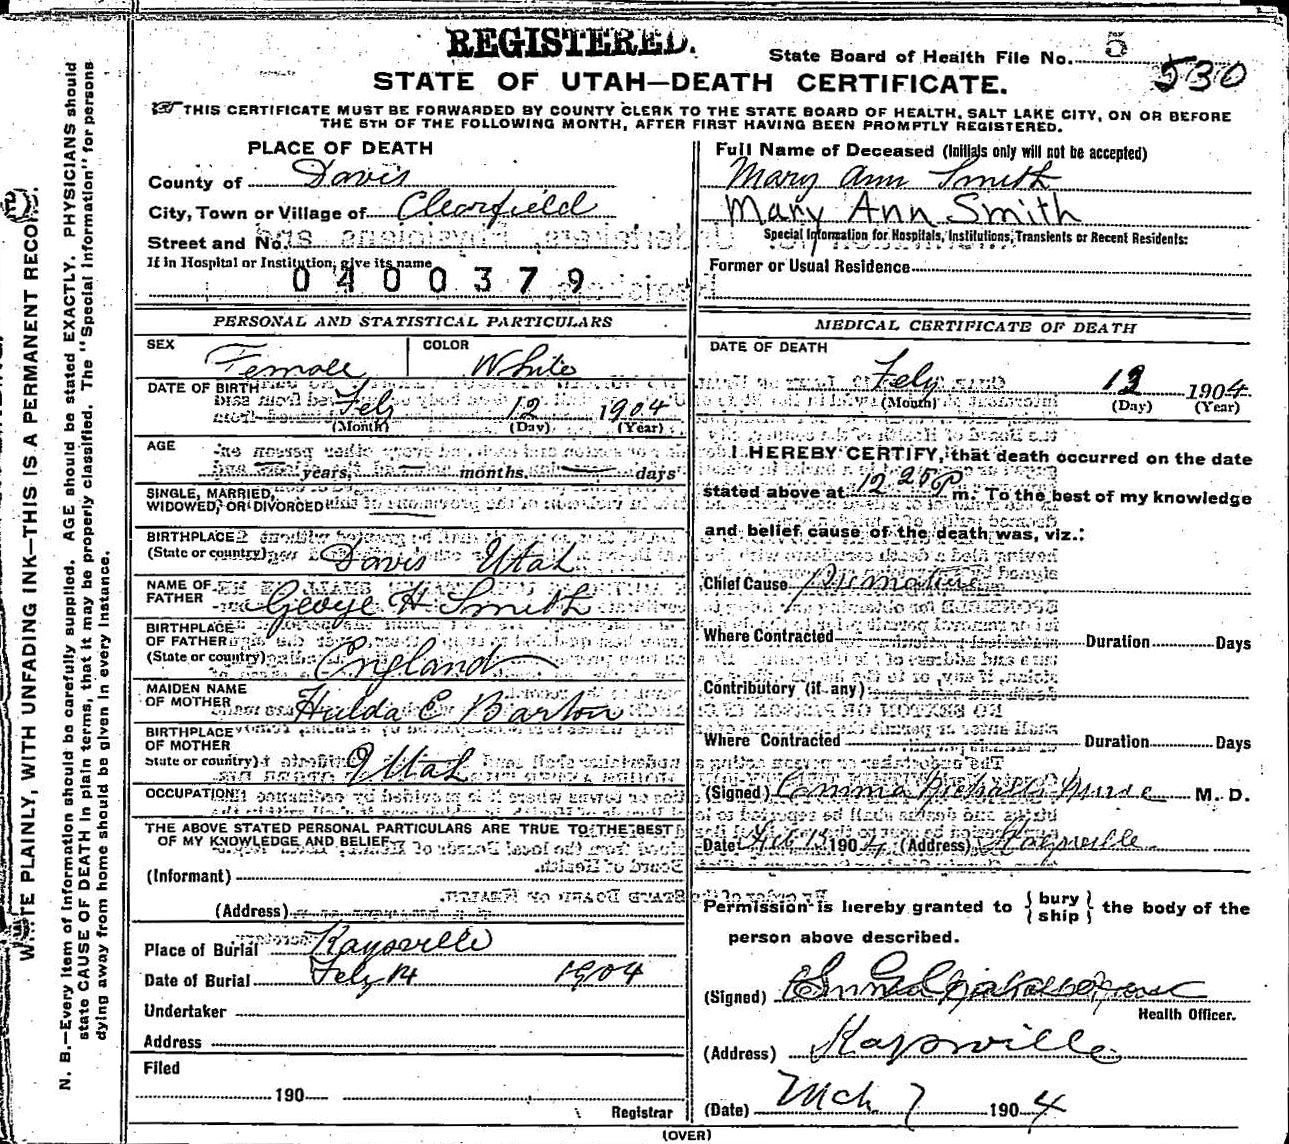 REGISTERED.
State Board of Health File No. 5
530
STATE OF UTAH—DEATH CERTIFICATE.
THIS CERTIFICATE MUST BE FORWARDED BY COUNTY CLERK TO THE STATE BOARD OF HEALTH, SALT LAKE CITY, ON OR BEFORE
THE 5TH OF THE FOLLOWING MONTH, AFTER FIRST HAVING BEEN PROMPTLY REGISTERED.
PLACE OF DEATH
County of Davis
City, Town or Village of Clearfield
Street and No.
If in Hospital or Institution, give its name
0400379
Full Name of Deceased (Initials only will not be accepted)
Mary Ann Smith
Mary Ann Smith
Special Information for Hospitals, Institutions, Transients or Recent Residents:
Former or Usual Residence
PERSONAL AND STATISTICAL PARTICULARS
SEX Female COLOR White
DATE OF BIRTH Feby 12 1904
(Month) (Day) (Year)
AGE
years, months. days
SINGLE, MARRIED,
WIDOWED, OR DIVORCED
BIRTHPLACE
(State or country) Davis Utah
NAME OF
FATHER George H Smith
BIRTHPLACE
OF FATHER
(State or country) England
MAIDEN NAME
OF MOTHER Hulda E Barton
BIRTHPLACE
OF MOTHER
State or country) Utah
OCCUPATION
THE ABOVE STATED PERSONAL PARTICULARS ARE TRUE TO THE BEST
OF MY KNOWLEDGE AND BELIEF
(Informant)
(Address)
Place of Burial Kaysville
Date of Burial Feby 14 1904
Undertaker
Address
Filed
190
Registrar
MEDICAL CERTIFICATE OF DEATH
DATE OF DEATH
Feby 12 1904
(Month) (Day) (Year)
I HEREBY CERTIFY, that death occurred on the date
stated above at 12 25 P m. To the best of my knowledge
and belief cause of the death was, viz.:
Chief Cause Premature
Where Contracted Duration Days
Contributory (if any)
Where Contracted Duration Days
(Signed) Nurse M. D.
Date Feb 13 1904 (Address) Kaysville
Permission is hereby granted to { bury
ship } the body of the
person above described.
(Signed)
Health Officer.
(Address) Kaysville
(Date) Mch 7 1904
(OVER)
WRITE PLAINLY, WITH UNFADING INK—THIS IS A PERMANENT RECORD.
N. B.—Every item of information should be carefully supplied. AGE should be stated EXACTLY. PHYSICIANS should
state CAUSE OF DEATH in plain terms, that it may be properly classified. The "Special Information" for persons
dying away from home should be given in every instance.